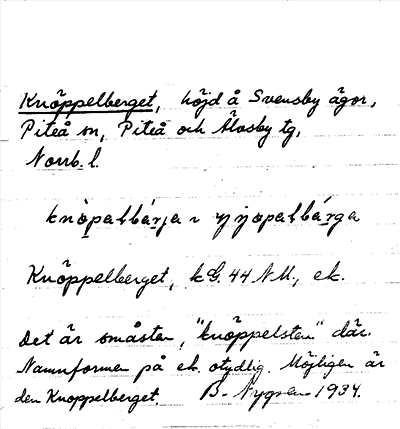 Knöppelberget, höjd å Svensby ägor,
Piteå sn, Piteå och Älvsby tg,
Norrb. l.
Knöppelberget, kG. 44 NV., ek.
Det är småsten, "knöppelsten" där.
Namnformen på ek. otydlig. Möjligen är
den Knoppelberget. B. 1934.